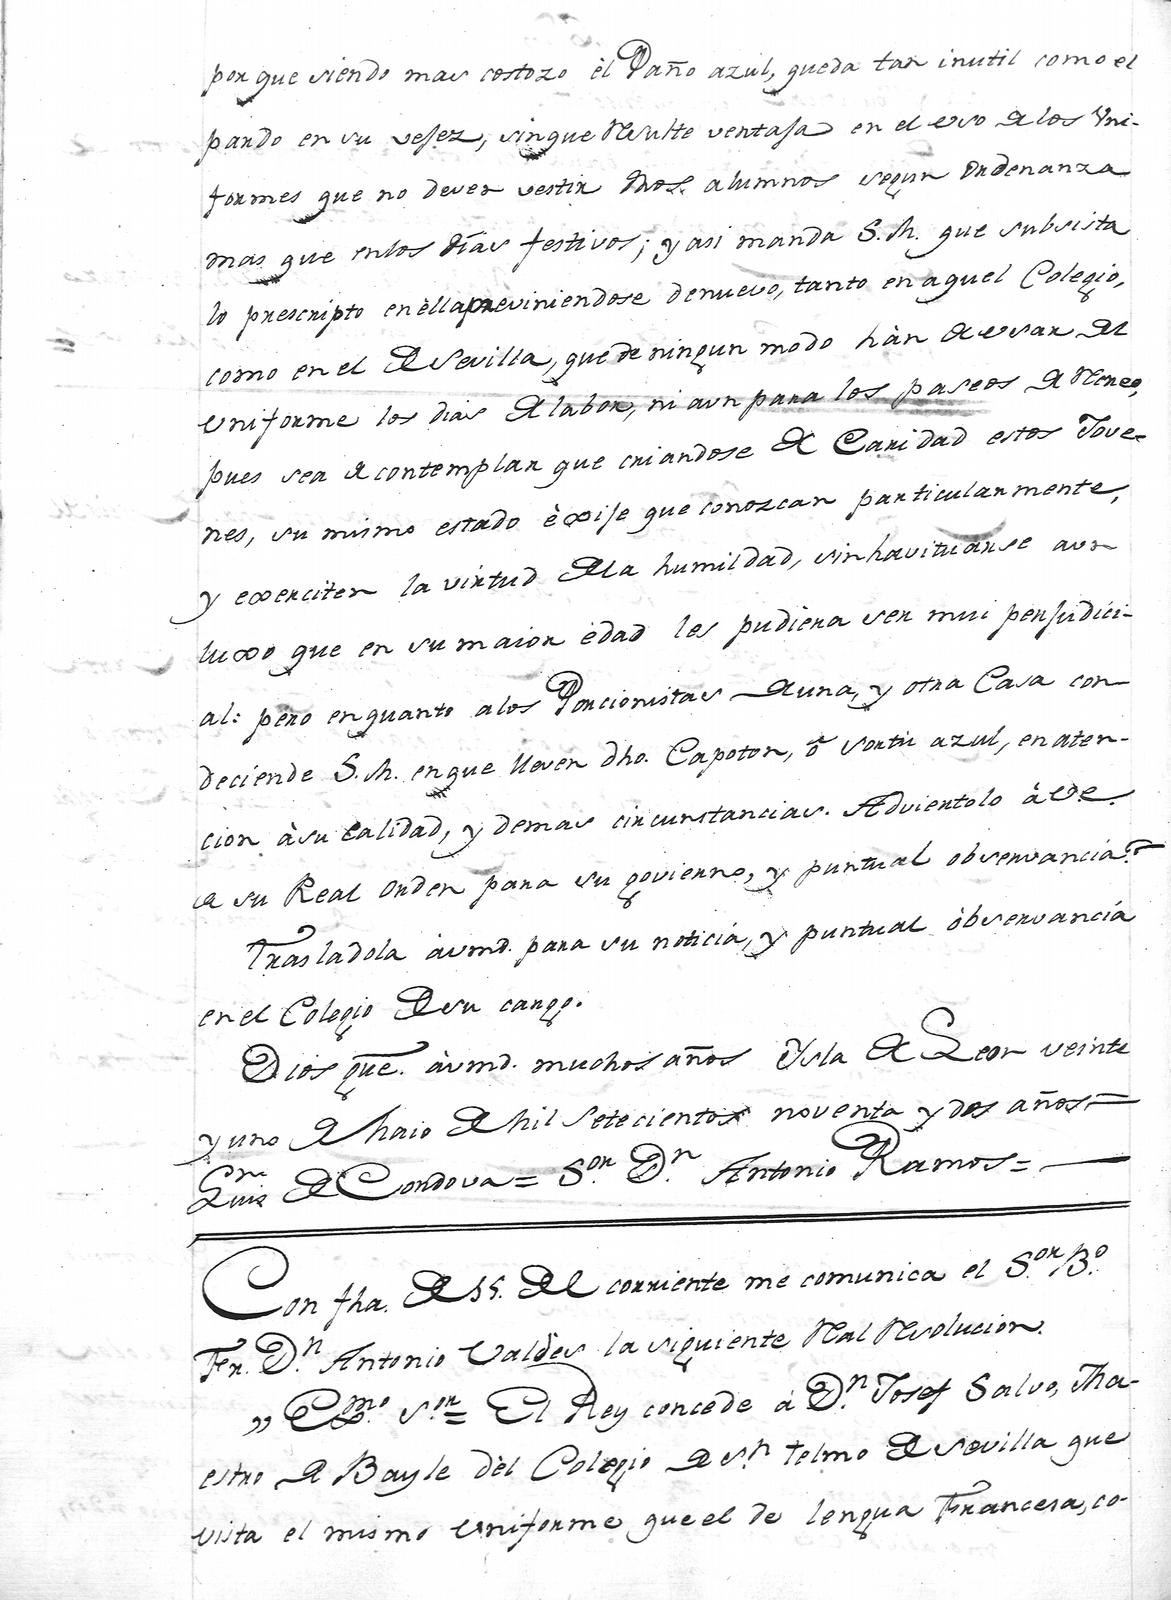 porque siendo mas costozo èl Paño azul, queda tan inutil como el
pardo en su vejez, sinque resulte ventaja en el uso de los Uni-
formes que no deven vestir dhos. alumnos segun ordenanza
mas que enlos dìas festivos; y asi manda S.M. que subsista
lo prescripto en èlla previniendose denuevo, tanto en aquel Colegio,
como en el de Sevilla, que de ningun modo hàn de usar del
Uniforme los dias de labor, ni aun para los paseos de recreo,
pues sea de contemplar que criandose de Caridad estos Jove-
nes, su mismo estado èxije que conozcan particularmente,
y exerciten la virtud dela humildad, sin havituarse aun
luxo que en su maior edad les pudiera ser mui perjudici-
al: pero enquanto alos Porcionistas deuna, y otra Casa con-
deciende S.M. enque lleven dho. Capoton, ô sortù azul, en aten-
cion àsu calidad, y demas circunstancias. Adviertolo à V.E.
de su Real orden para su govierno, y puntual observancia.
Trasladola àvmd. para su noticia, y puntual òbservancia
en el Colegio de su cargo.
Dios gue. àvmd. muchos años Ysla de Leon veinte
y uno de Maio de Mil Setecientos noventa y dos años =
Luis de Cordova = S.or D.n Antonio Ramos =
Con fha. de 15. del corriente me comunica el S.or B.o
Fr. D.n Antonio Valdès la siguiente Real Resolucion.
„ Exmo. S.or = El Rey concede à D.n Josef Salvo, Ma-
estro de Bayle dèl Colegio de S.n Telmo de Sevilla que
vista el mismo Uniforme que el de lengua Francesa, co-